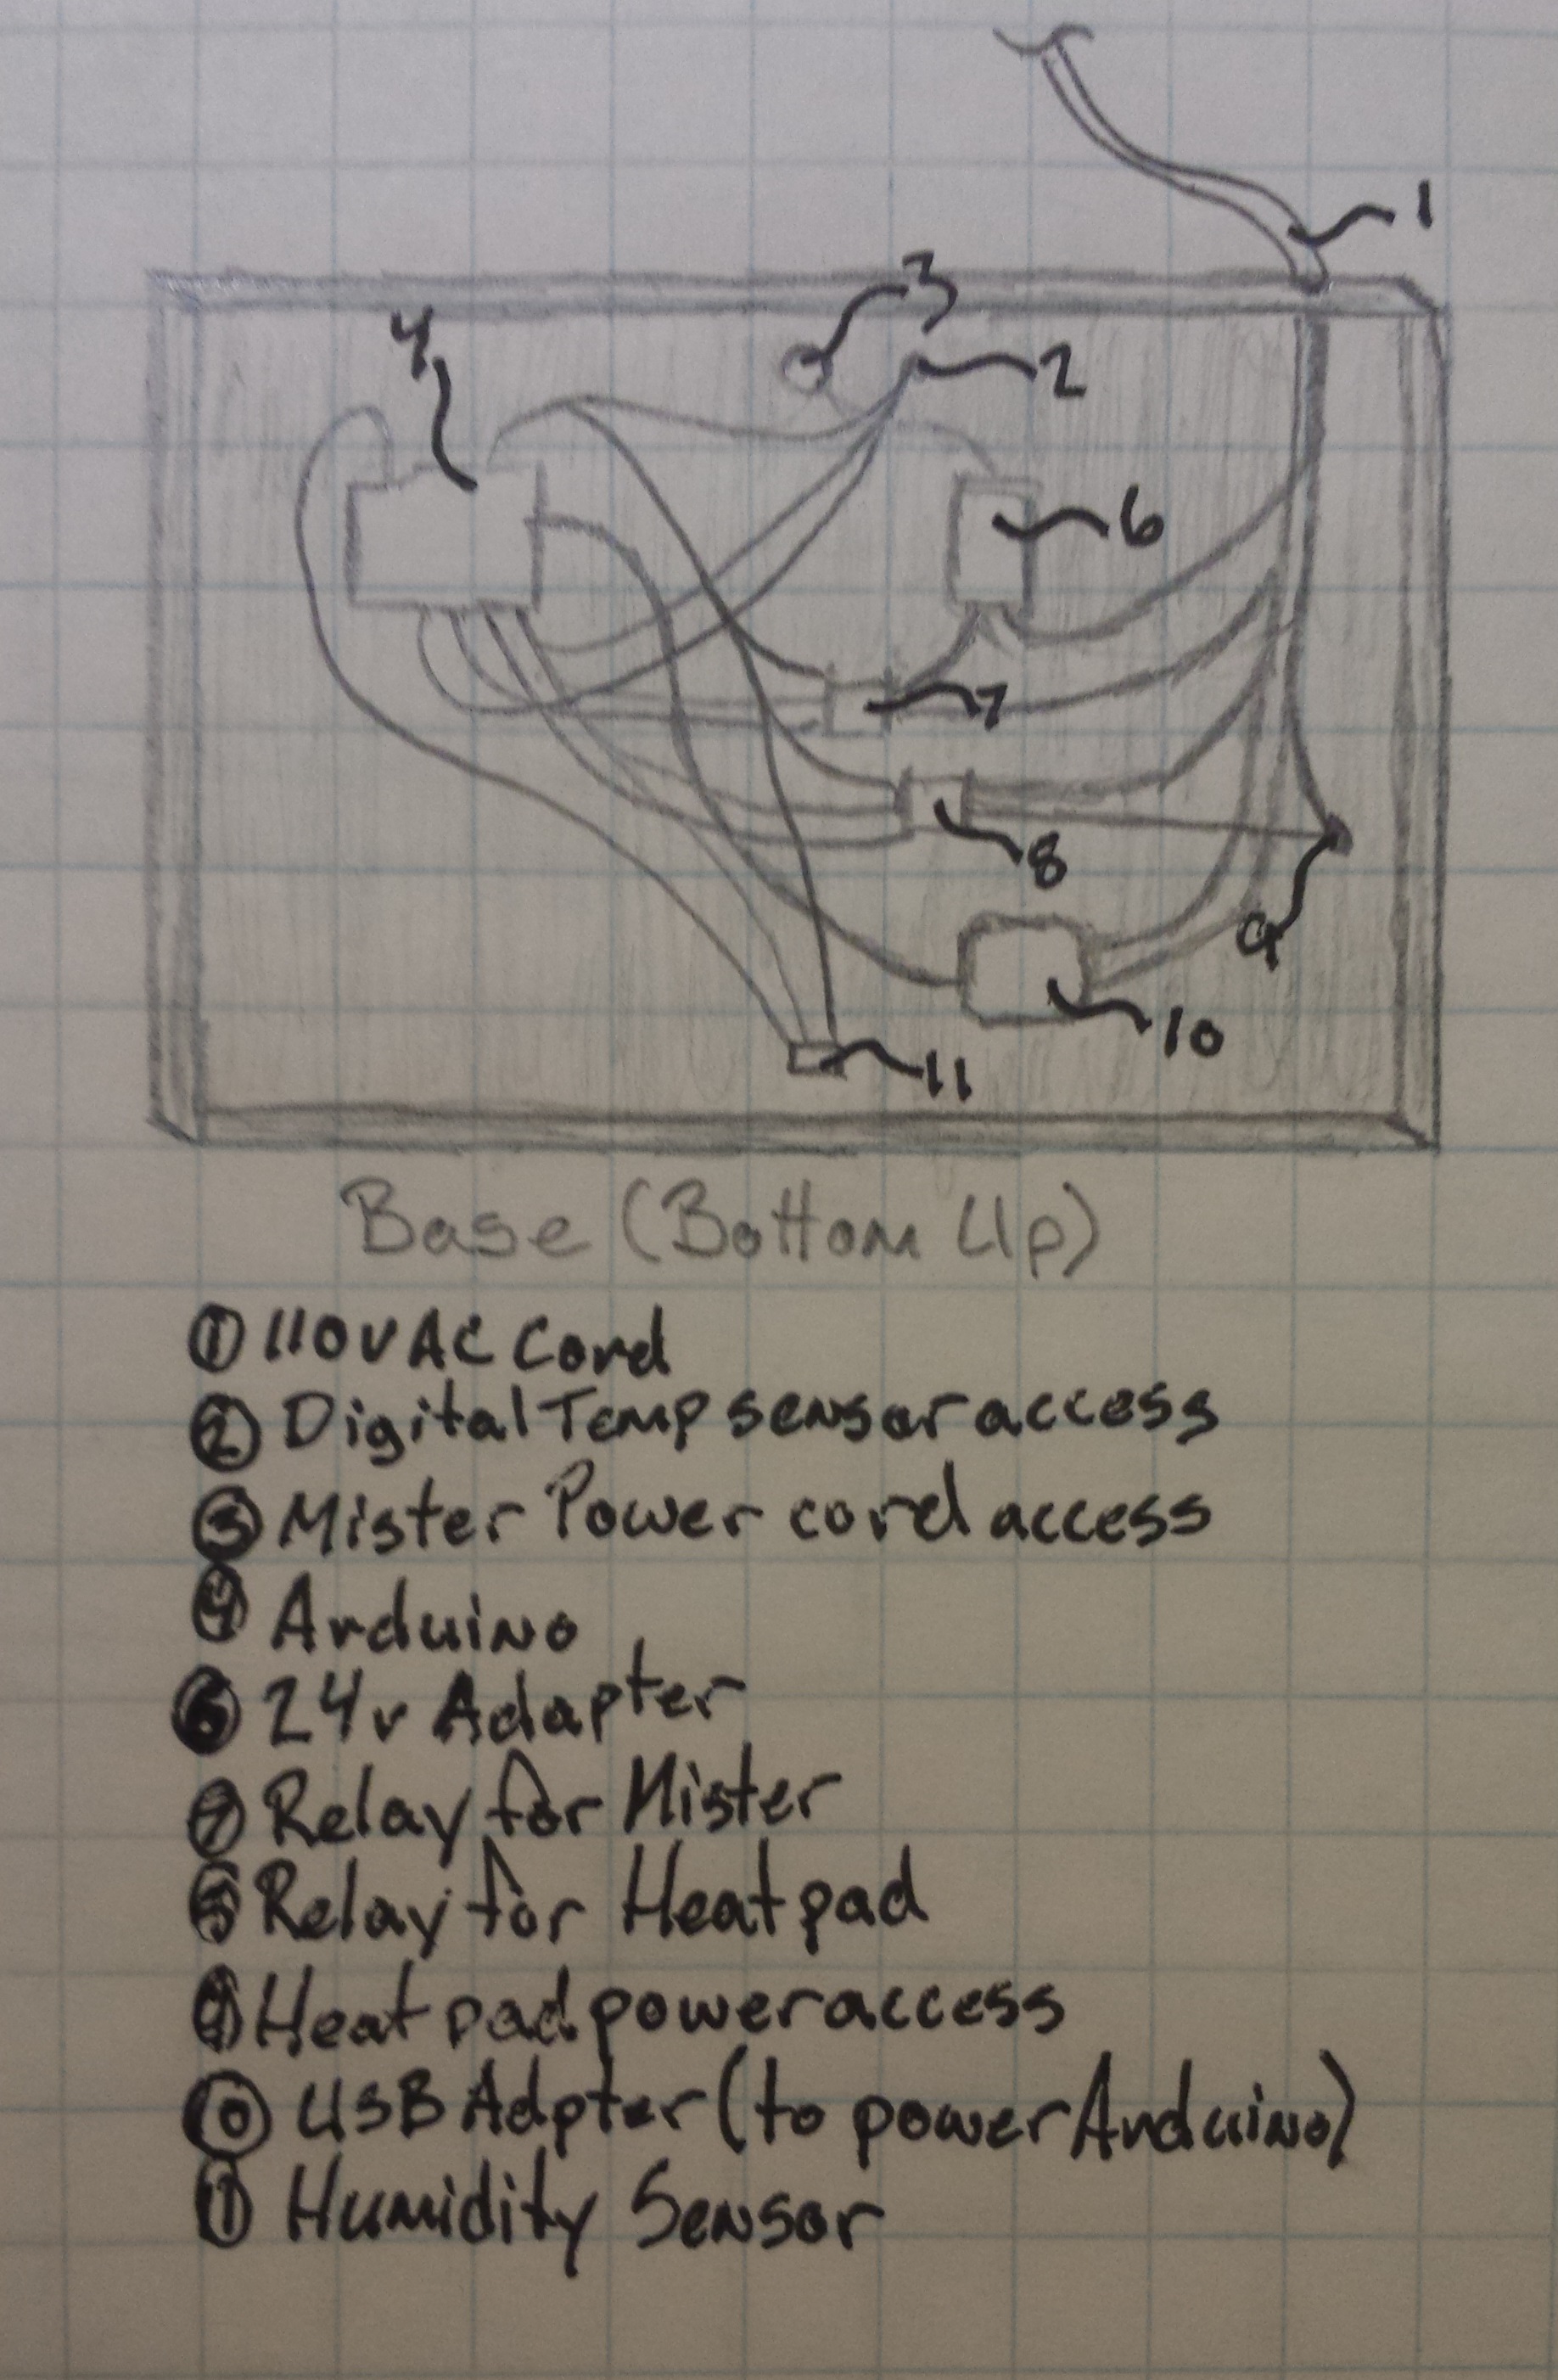 1
3
4
2
6
7
8
9
10
11
Base (Bottom Up)
① 110v AC Cord
② Digital Temp sensor access
③ Mister Power cord access
④ Arduino
⑥ 24v Adapter
⑦ Relay for Mister
⑧ Relay for Heat pad
⑨ Heat pad power access
⑩ USB Adpter (to power Arduino)
⑪ Humidity Sensor